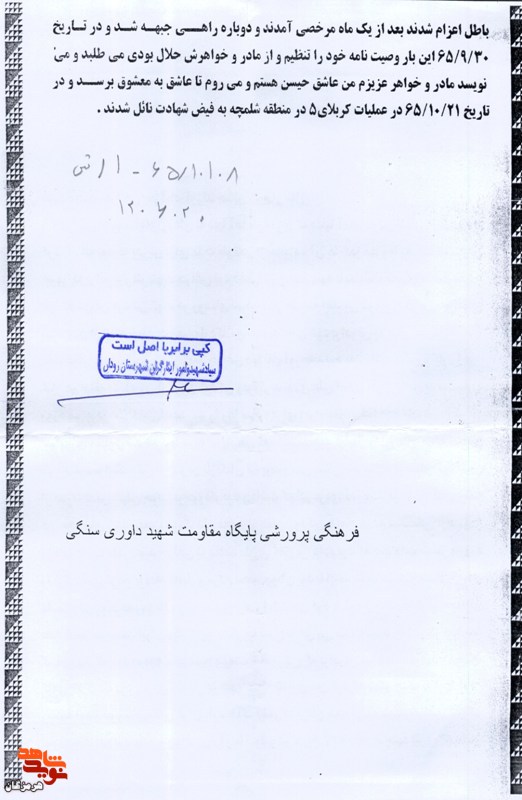 باطل اعزام شدند بعد از یک ماه مرخصی آمدند و دوباره راهـــی جبهـــه شـــد و در تـــاریخ
۶۵/۹/۳۰ این بار وصیت نامه خود را تنظیم و از مادر و خواهرش حلال بودی می طلبد و می
نویسد مادر و خواهر عزیزم من عاشق حیسن هستم و می روم تا عاشق به معشوق برســـد و در
تاریخ ۶۵/۱۰/۲۱ در عملیات کربلای۵ در منطقه شلمچه به فیض شهادت نائل شدند .
کپی برابر با اصل است
فرهنگی پرورشی پایگاه مقاومت شهید داوری سنگی
نوید شاهد
هرمزگان